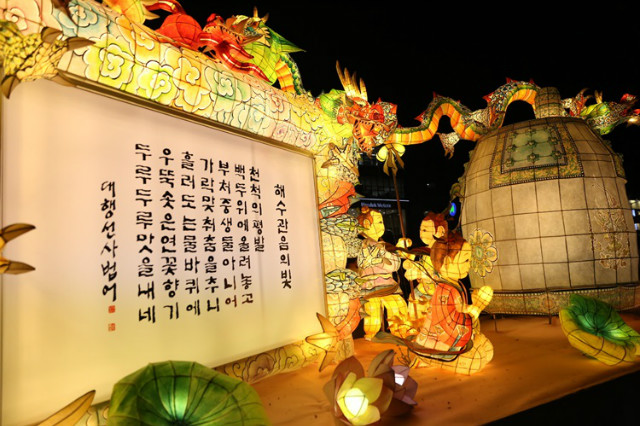 해수관음의 빛
천척의평발
백두위에올려놓고
부처중생둘아니어
가락맞춰춤을추니
흘러도는물바퀴에
우뚝솟은연꽃향기
두루두루맛을내네
대행선사법어